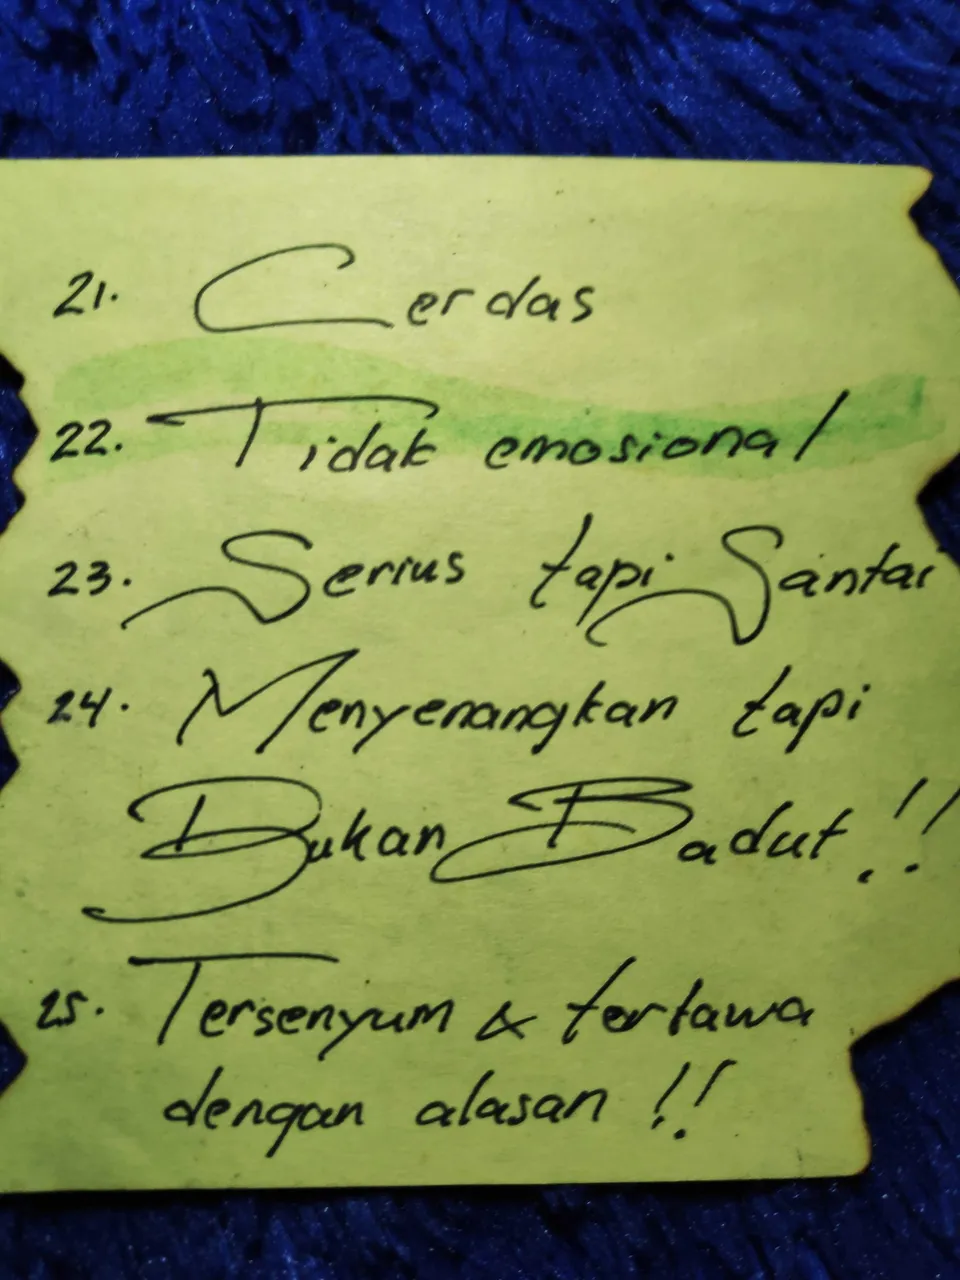 21. Cerdas
22. Tidak emosional
23. Serius tapi Santai
24. Menyenangkan tapi
Bukan Badut !!
25. Tersenyum & tertawa
dengan alasan !!